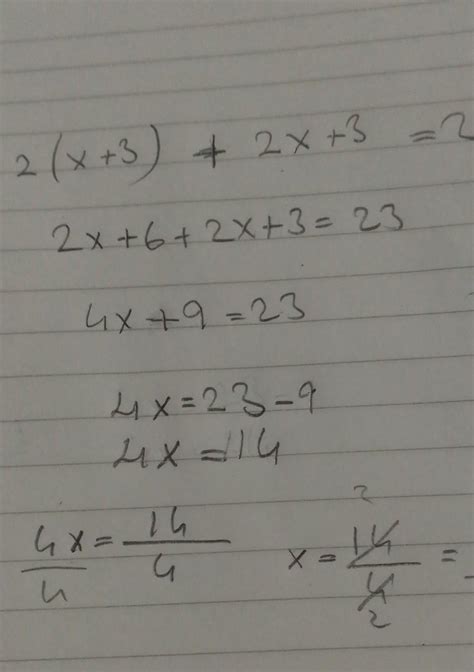 2(x+3) + 2x+3 = 2
2x+6+2x+3=23
4x+9=23
4x=23-9
4x=14
4x/4 = 14/4 x = 14/4 =
2
2